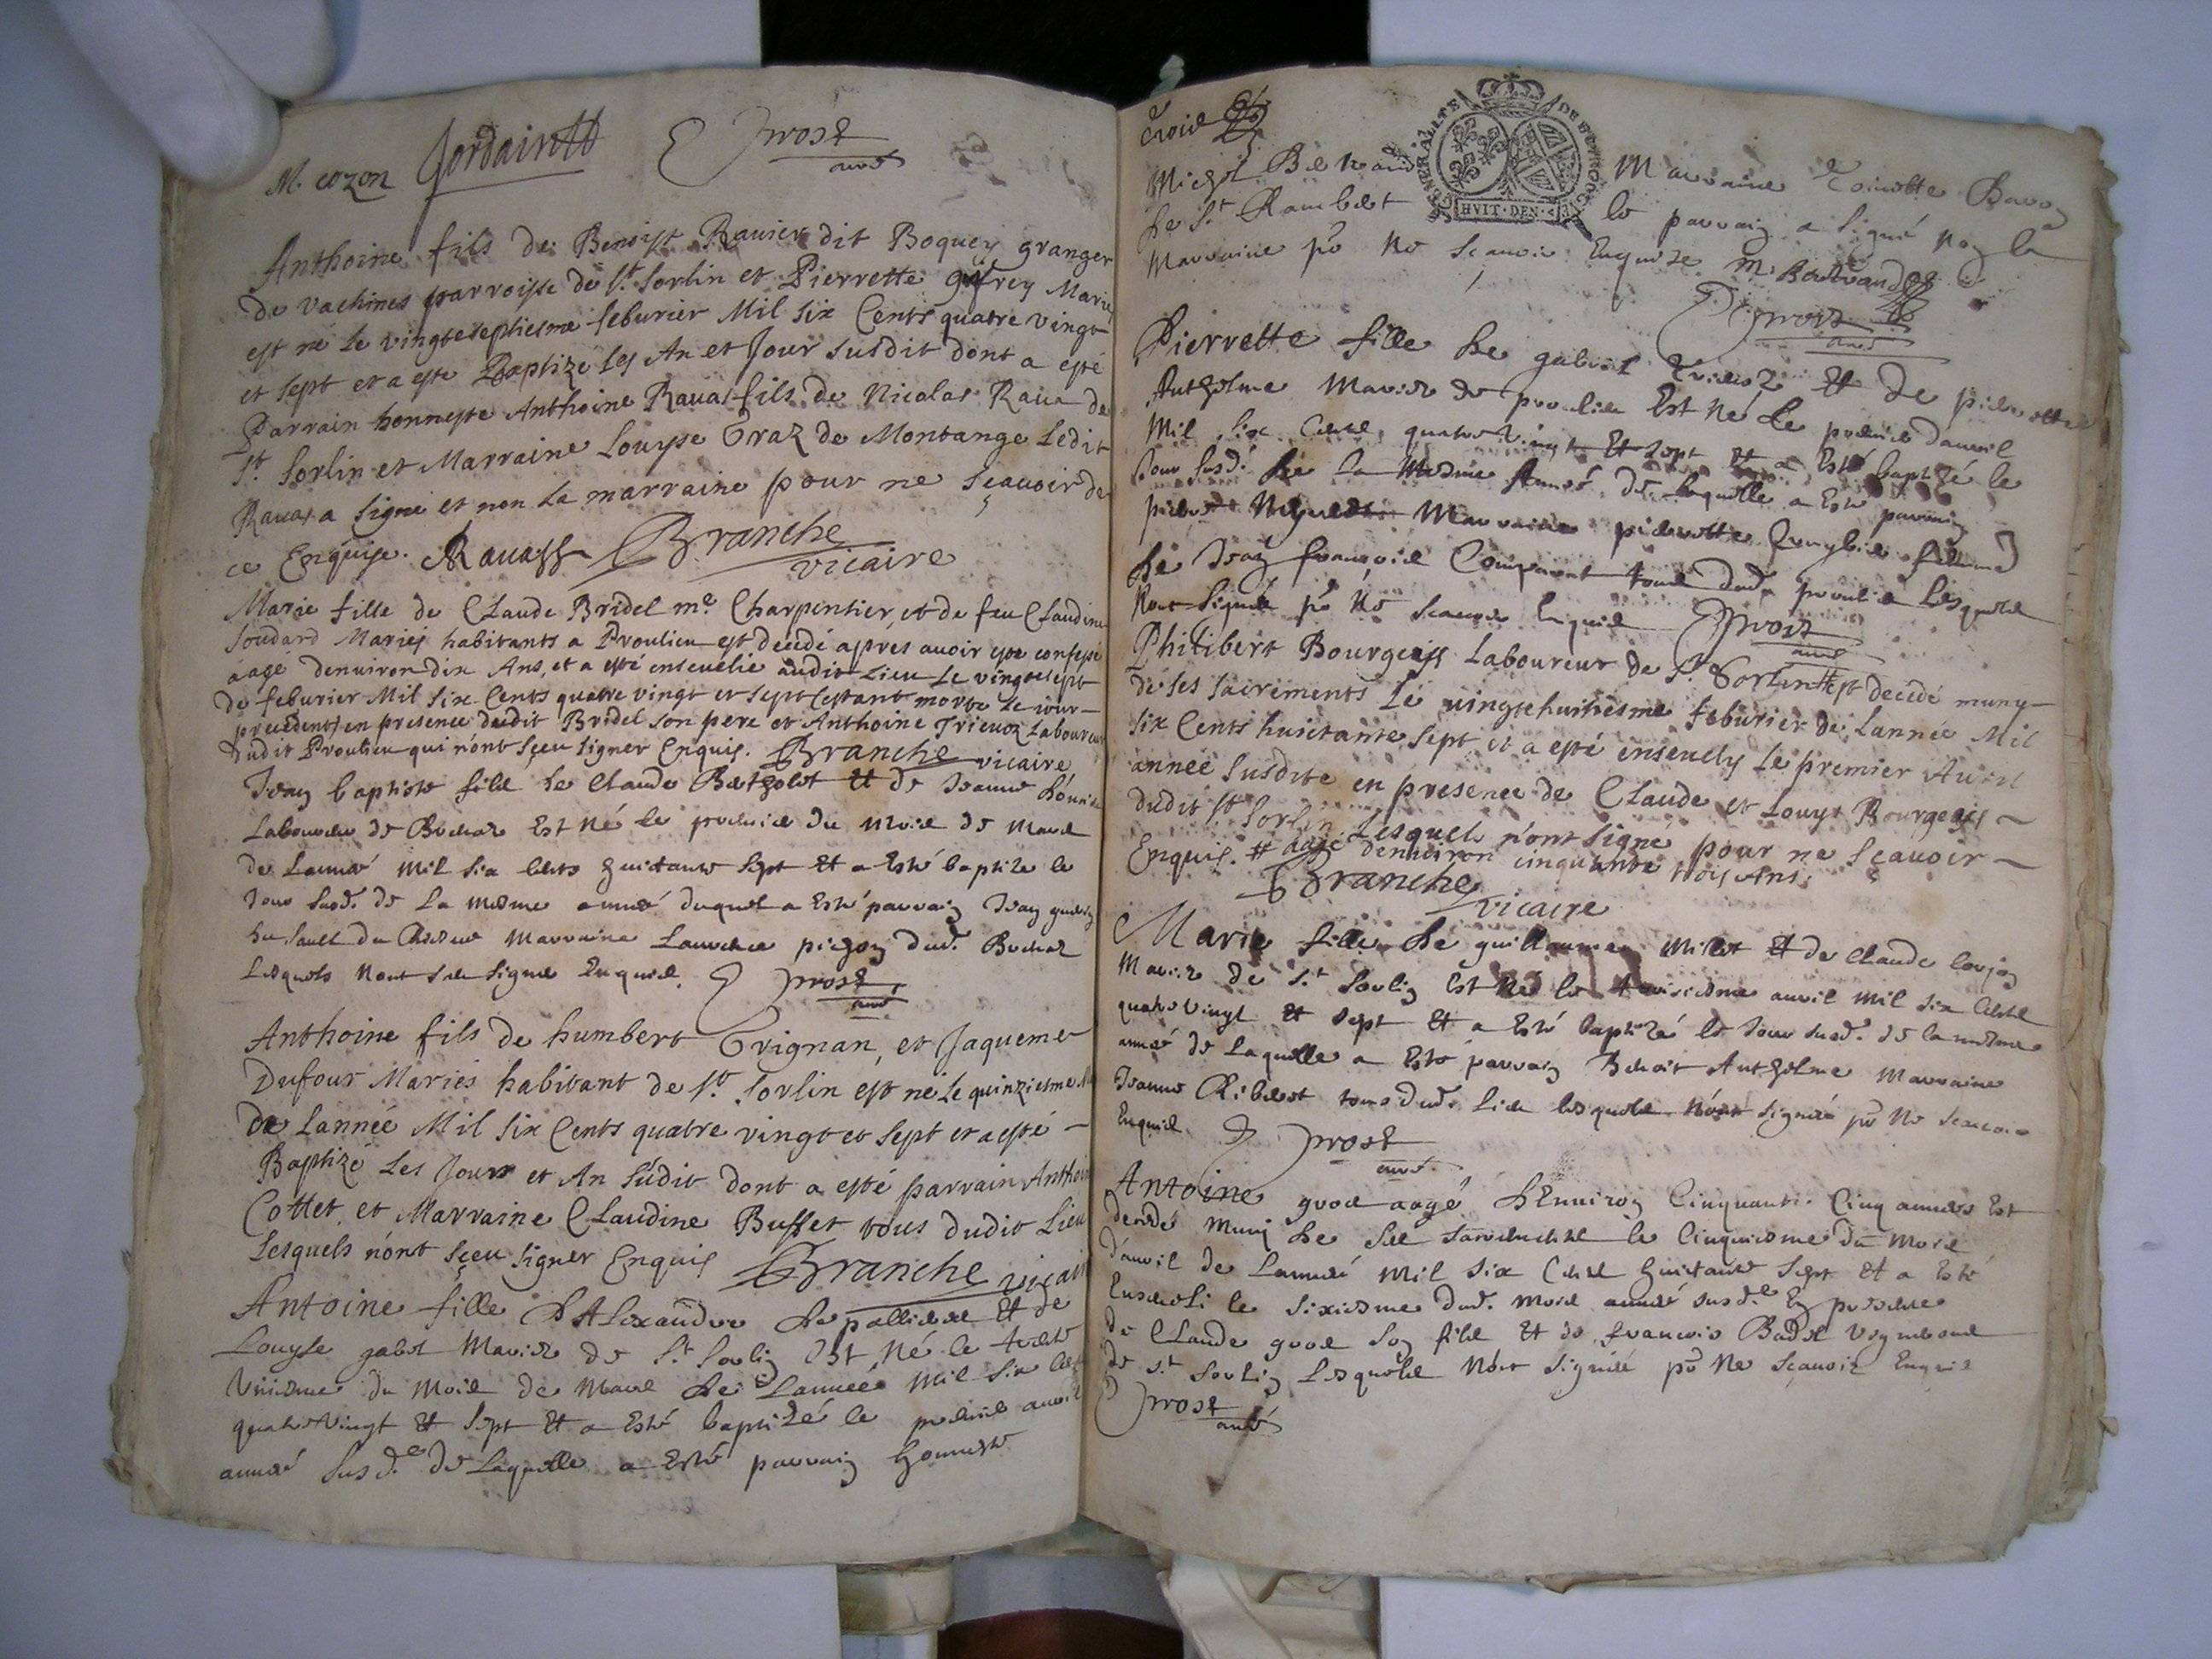 M. cozon Jordain Prost
curé
Anthoine fils de Benoist Ravier dit Boquey granger
de vachines parroisse de St. Sorlin et Pierrette gifrey Mariez
est né le vingteseptiesme feburier Mil six Cents quatre vingt
et sept et a este Baptizé les An et Jour susdit dont a esté
Parrain honneste Anthoine Rauas fils de Nicolas Raua de
St. Sorlin et Marraine Louyse Traz de Montange Ledit
Rauas a signé et non la marraine pour ne sçauoir de
ce Enquise. Rauass Branche
vicaire
Marie fille de Claude Bridel me. Charpentier, et de feu Claudine
Soudard Mariez habitants a Proulieu est décédé apres auoir esté confessé
aagé denuiron dix Ans, et a esté enseuelie audit Lieu Le vingtesept
de feburier Mil six Cents quatre vingt et sept (estant morte le iour
precedent) en presence dudit Bridel son pere et Anthoine Trieuoz Laboureur
dudit Proulieu qui n'ont sçeu signer Enquis. Branche vicaire
Jean baptiste fils de Claude Bertholet et de Jeanne
Laboureur de est né le premier du mois de Mars
de Lanné mil six cents huictante sept et a esté baptize le
Jour susd. de la mesme anneé duquel a esté parrain Jean
du sault du Marraine Laurence pichon dud.
Lesquels nont sceu signer Enquis. Prost
curé
Anthoine fils de humbert Trignan, et Jaqueme
Dufour Mariés habitant de St. Sorlin est né le quinziesme
de Lannée Mil six Cents quatre vingt et sept et a esté
Baptizé Les Jour et An súdit dont a esté parrain Anthoine
Cottet, et Marraine Claudine Buffet tous dudit Lieu
Lesquels n'ont sçeu signer Enquis Branche vicaire
Antoine fille d'Alexandre de pallieres et de
Louyse gabet Mariez de St. Sorlin est né le trente
Vniesme du Mois de Mars de Lanneé mil six cents
quatre Vingt et sept et a esté baptizé le premier auril
anneé susd.e de Laquelle a esté parrain honneste
GENERALITE DE BOURGOGNE
HVIT DEN
Michel Bertrand Marraine Toinette
de St. Rambert le parrain a signé non la
Marraine po. ne scauoir Enquise m. Bertrand
Prost
curé
Pierrette fille de gabriel Trieuoz et de pierrette
Antholme Mariez de proulieu est né le premier dauril
Mil six cents quatre vingt et sept et a esté baptizé le
Jour susd. de la mesme Anneé de laquelle a esté parrain
pierre Marraine pierrette femme
de Jean francois Comparent tous dud. proulieu Lesquels
nont signé po. ne scauoir Enquis Prost
curé
Philibert Bourgeois Laboureur de St. Sorlin # est decedé muny
de ses sacrements Le uingtehuitiesme feburier de Lannée Mil
six Cents huictante sept et a esté enseuely Le premier Auril
année susdite en presence de Claude et Louys Bourgeois
dudit St. Sorlin Lesquels n'ont signé pour ne sçauoir
Enquis. # aagé denuiron cinquante trois Ans.
Branche
vicaire
Marie fille de guillaume Millet et de Claude
Mariez de St. Sorlin est né le troisiesme auril mil six cents
quatre Vingt et sept et a esté baptizé le Jour susd. de la mesme
anneé de Laquelle a esté parrain Benoit Antholme Marraine
Jeanne Ribert tous dud. Lieu lesquels n'ont signé po. ne scauoir
Enquis Prost
curé
Antoine aagé d'Enuiron Cinquante Cinq années est
decedé muny de ses sacrements le Cinquiesme du Mois
d'auril de Lanneé Mil six Cents huictante sept et a esté
Enseueli le sixiesme dud. Mois anneé susd.e En presence
de Claude son fils et de francois
de St. Sorlin Lesquels n'ont signé po. ne sçauoir Enquis
Prost
curé